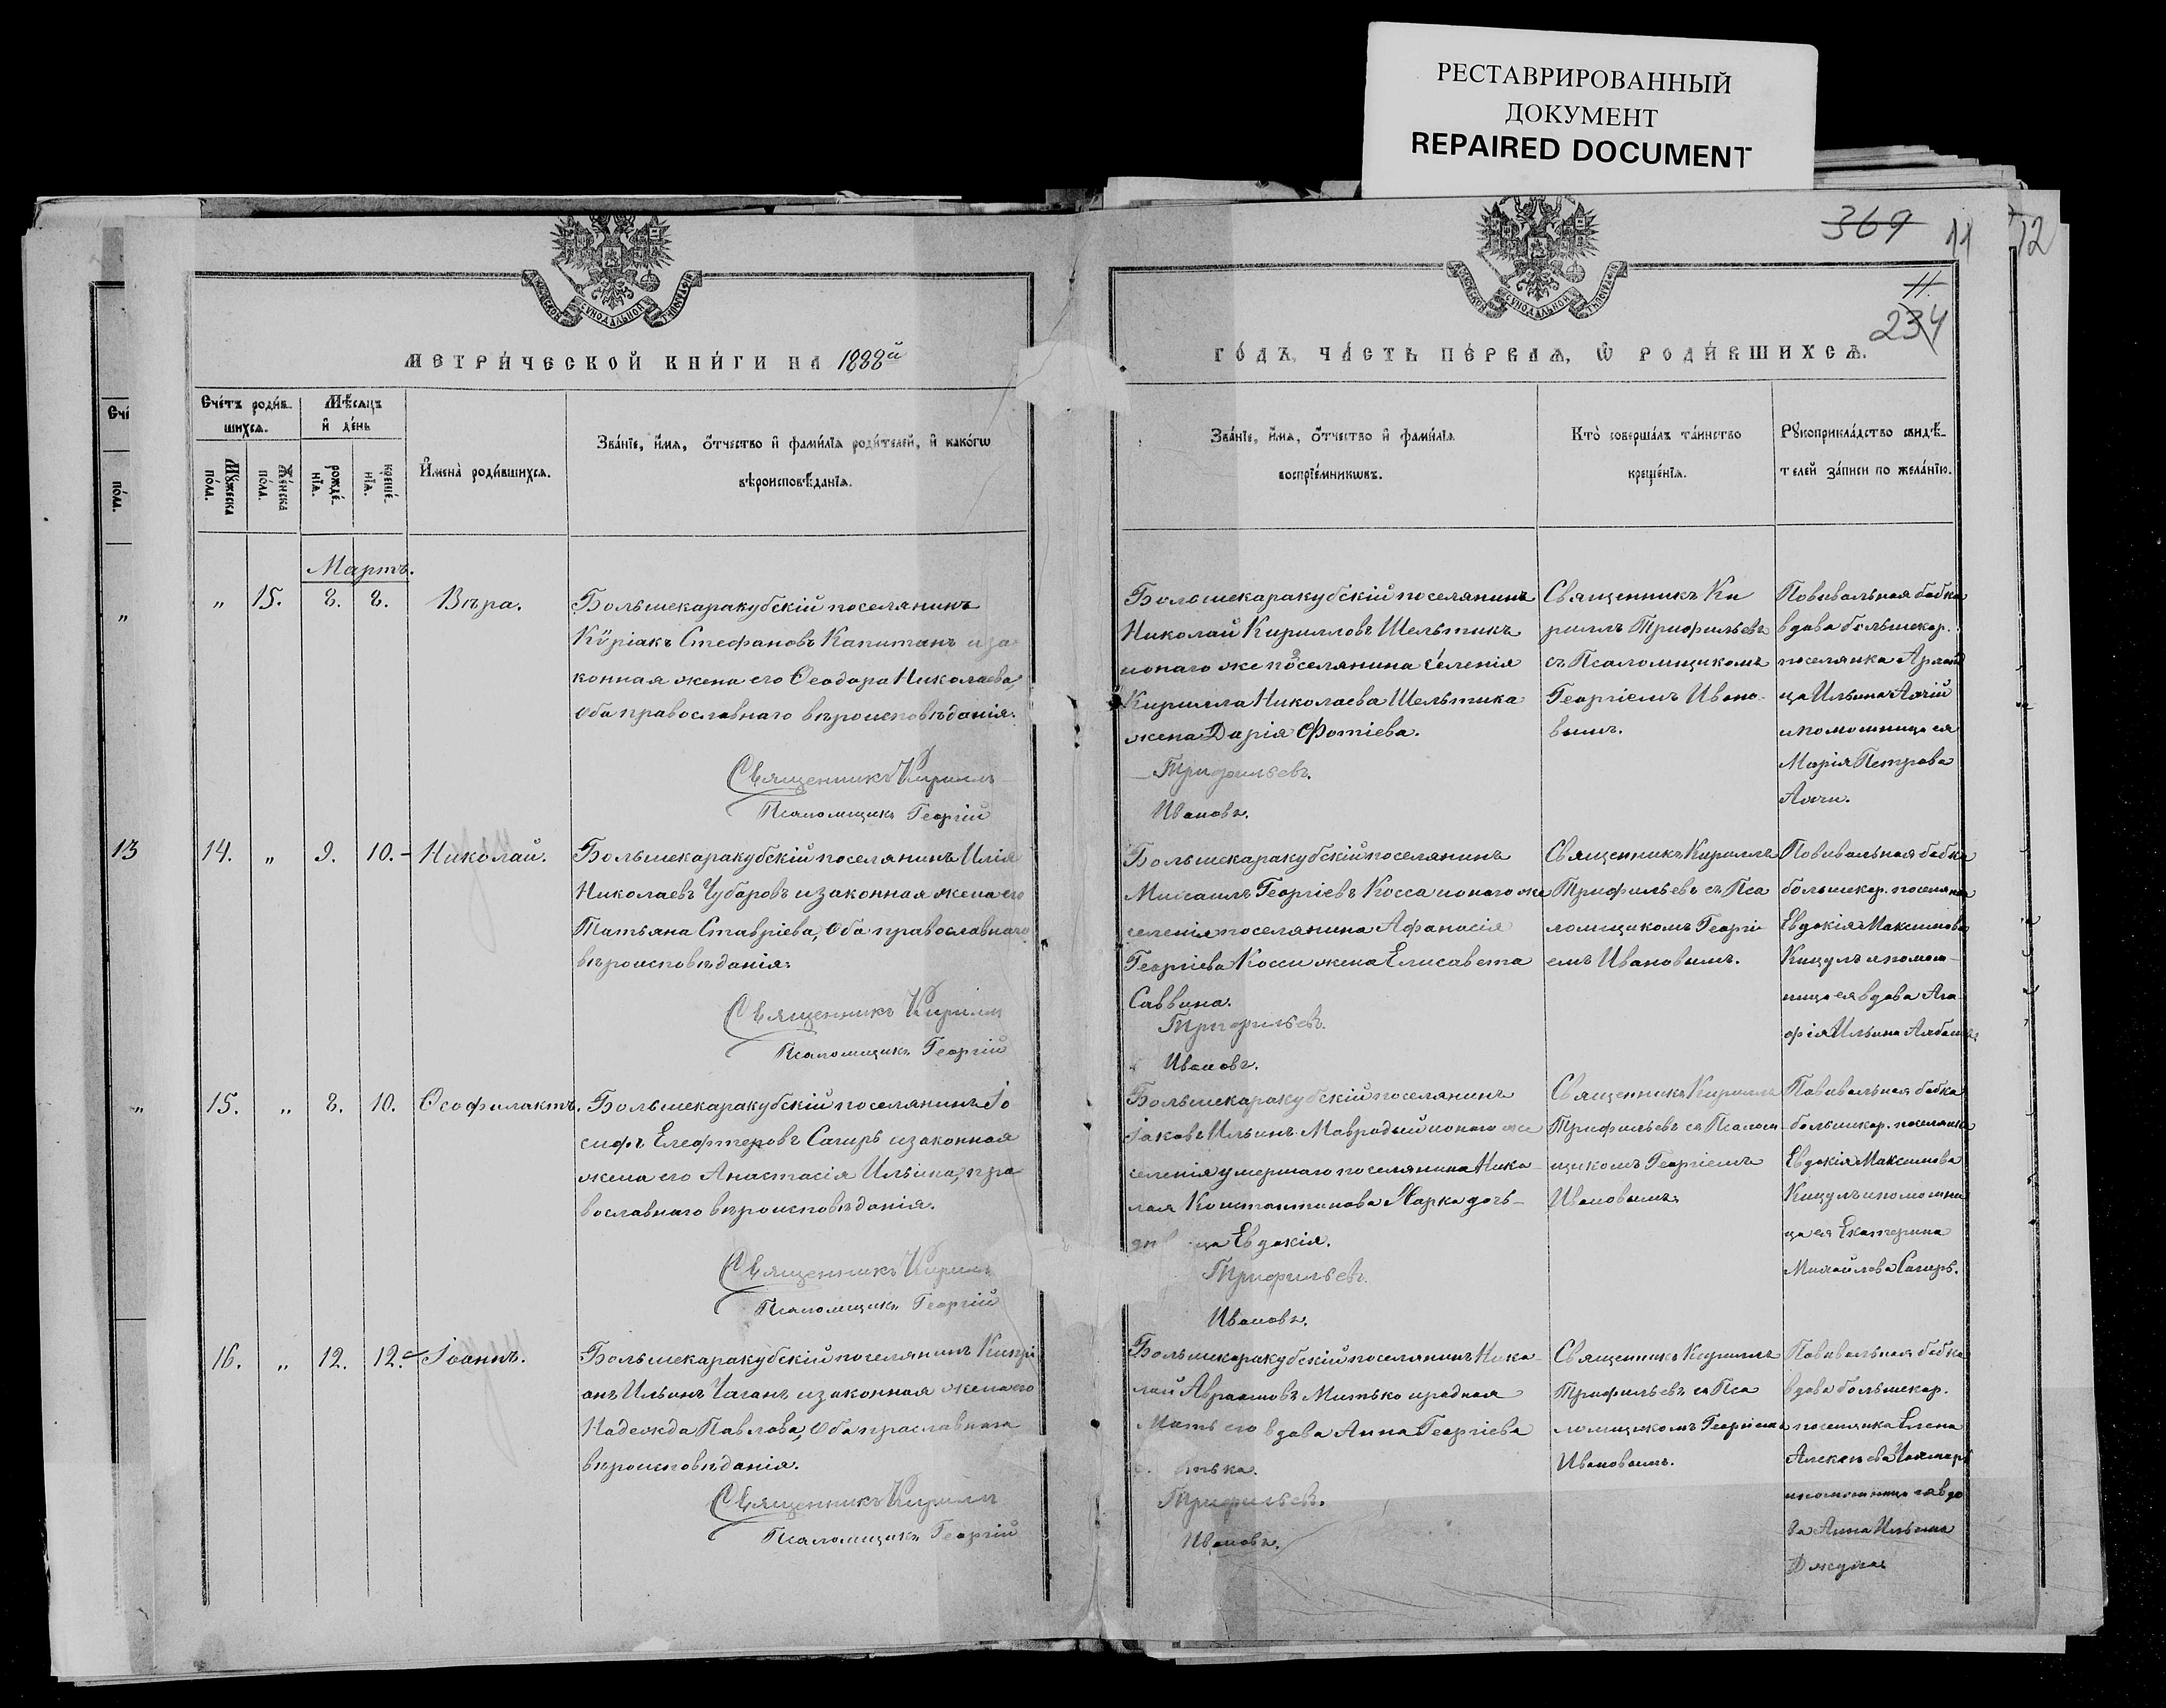 РЕСТАВРИРОВАННЫЙ
ДОКУМЕНТ
REPAIRED DOCUMENT
369 11 12
11.
234
МЕТРИ́ЧЕСКОЙ КНИ́ГИ НА 1888й
ГО́ДЪ, ЧА́СТЬ ПЕ́РВАѦ, Ѡ РОДИ́ВШИХСѦ.
Счéтъ роди́в-
шихсѧ.
Мѣ́сѧцъ
и҆ дéнь
Мꙋ́жеска
по́ла.
Жéнска
по́ла.
рождé-
нїѧ.
крещé-
нїѧ.
И҆менà роди́вшихсѧ.
Звáнїе, и҆́мѧ, ѻ҆́тчество и҆ фами́лїѧ роди́телей, и҆ какóгѡ
вѣроисповѣ́данїѧ.
Звáнїе, и҆́мѧ, ѻ҆́тчество и҆ фами́лїѧ
воспрїéмникѡвъ.
Ктò совершáлъ тáинство
крещéнїѧ.
Рꙋкоприклáдство свидѣ́-
телей зáписи по желáнїю.
Мартъ.
" 15. 8. 8. Вѣра.
Большекаракубскій поселянинъ
Кѵріакъ Стефановъ Капитанъ и за-
конная жена его Ѳеодора Николаева,
оба православнаго вѣроисповѣданія.
Священникъ Кирилъ
Псаломщикъ Георгій
Большекаракубскій поселянинъ
Николай Кирилловъ Шельтикъ
и онаго же поселянина селенія
Кирилла Николаева Шельтика
жена Дарія Фотіева.
Трифильевъ.
Ивановъ.
Священникъ Ки
риллъ Трифильевъ
съ Псаломщикомъ
Георгіемъ Ивано-
вымъ.
Повивальная бабка
вдова большекар.
поселянка
ца Ильина
и помошница ея
Марія Петрова
13 14. " 9. 10. Николай.
Большекаракубскій поселянинъ Илія
Николаевъ Чубаровъ и законная жена его
Татьяна Ставріева, оба православнаго
вѣроисповѣданія.
Священникъ Кирилъ
Псаломщикъ Георгій
Большекаракубскій поселянинъ
Михаилъ Георгіевъ Косса и онаго же
селенія поселянина Афанасія
Георгіева Косси жена Елисавета
Саввина.
Трифильевъ.
Ивановъ.
Священникъ Кириллъ
Трифильевъ съ Пса
ломщикомъ Георгі
емъ Ивановымъ.
Повивальная бабка
большекар. поселянка
Евдокія Максимова
Кицулъ и помош-
ница ея вдова Ага
фія Ильина
" 15. " 8. 10. Ѳеофилактъ.
Большекаракубскій поселянинъ Іо
сифъ Елефтеровъ Сагиръ и законная
жена его Анастасія Ильина, пра
вославнаго вѣроисповѣданія.
Священникъ Кирилъ
Псаломщикъ Георгій
Большекаракубскій поселянинъ
Іаковъ Ильинъ Мавродый и онаго же
селенія умершаго поселянина Нико-
лая Константинова Харка дочь-
ца Евдокія.
Трифильевъ.
Ивановъ.
Священникъ Кириллъ
Трифильевъ съ Псалом
щикомъ Георгіемъ
Ивановымъ.
Повивальная бабка
большекар. поселянка
Евдокія Максимова
Кицулъ и помошни
ца ея Екатерина
Михайлова Сагиръ.
16. " 12. 12. Іоаннъ.
Большекаракубскій поселянинъ Кипрі
анъ Ильинъ Чаганъ и законная жена его
Надежда Павлова, оба праславнаго
вѣроисповѣданія.
Священникъ Кирилъ
Псаломщикъ Георгій
Большекаракубскій поселянинъ Нико-
лай Авраамовъ Митько и родная
Мать его вдова Анна Георгіева
тька.
Трифильевъ.
Ивановъ.
Священникъ Кириллъ
Трифильевъ съ Пса
ломщикомъ Георгіемъ
Ивановымъ.
Повивальная бабка
вдова большекар.
поселянка Елена
Алексѣева
и помошница ея вдо
ва Анна Ильина